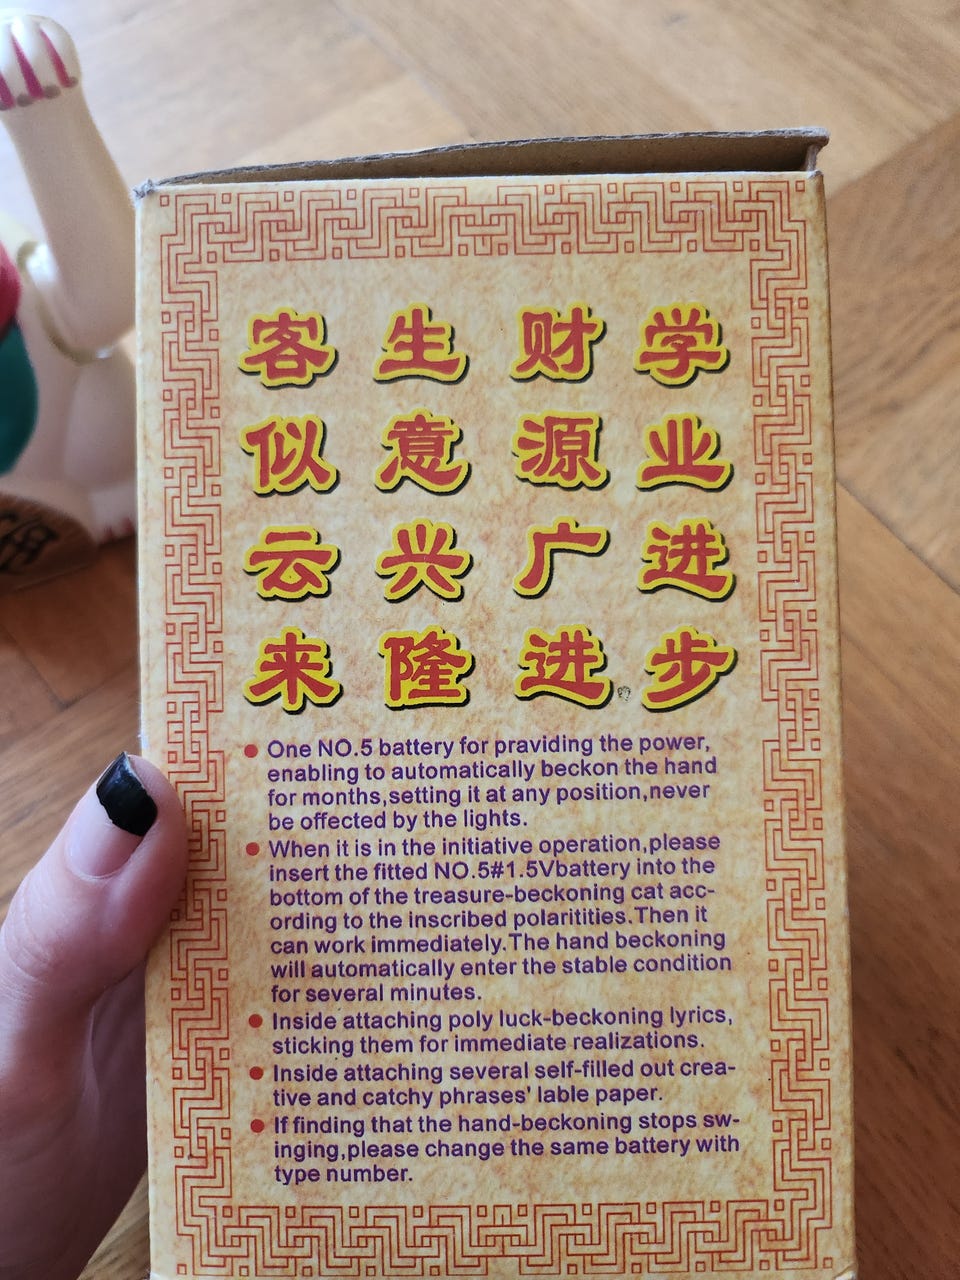 学业进步
财源广进
生意兴隆
客似云来
● One NO.5 battery for praviding the power,
enabling to automatically beckon the hand
for months,setting it at any position,never
be offected by the lights.
● When it is in the initiative operation,please
insert the fitted NO.5#1.5Vbattery into the
bottom of the treasure-beckoning cat acc-
ording to the inscribed polaritities.Then it
can work immediately.The hand beckoning
will automatically enter the stable condition
for several minutes.
● Inside attaching poly luck-beckoning lyrics,
sticking them for immediate realizations.
● Inside attaching several self-filled out crea-
tive and catchy phrases' lable paper.
● If finding that the hand-beckoning stops sw-
inging,please change the same battery with
type number.